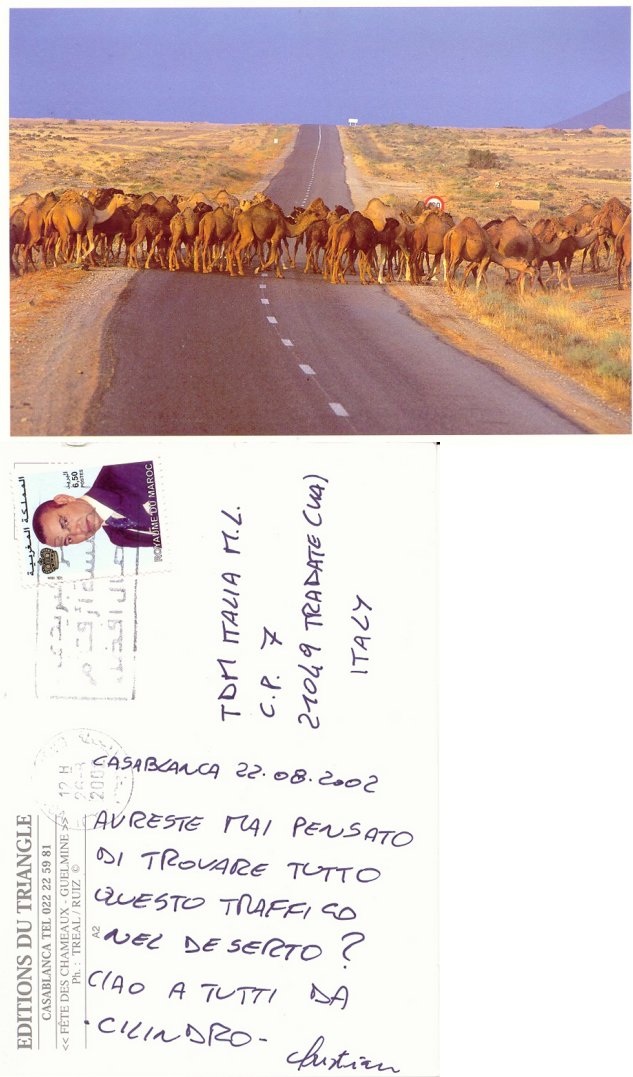 المملكة المغربية
6.50
البريد
POSTES
ROYAUME DU MAROC
TDM ITALIA M.L.
C.P. 7
21049 TRADATE (VA)
ITALY
12 H
CASABLANCA 22.08.2002
AVRESTE MAI PENSATO
DI TROVARE TUTTO
QUESTO TRAFFICO
NEL DESERTO?
CIAO A TUTTI DA
-CILINDRO-
Christian
EDITIONS DU TRIANGLE
CASABLANCA TEL 022 22 59 81
<< FÊTE DES CHAMEAUX - GUELMINE >>
Ph. : TREAL / RUIZ ©
A2